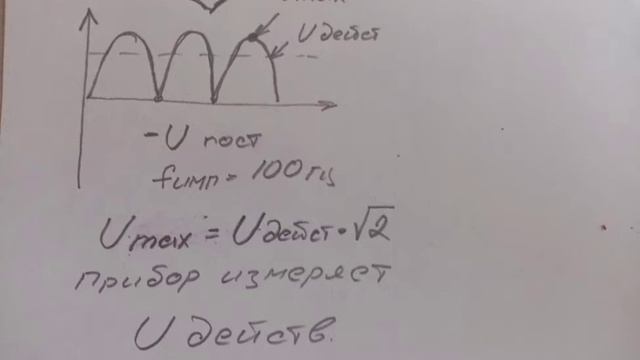 U дейст
-U пост
fимп= 100гц
Umax = Uдейст·√2
прибор измеряет
U действ.